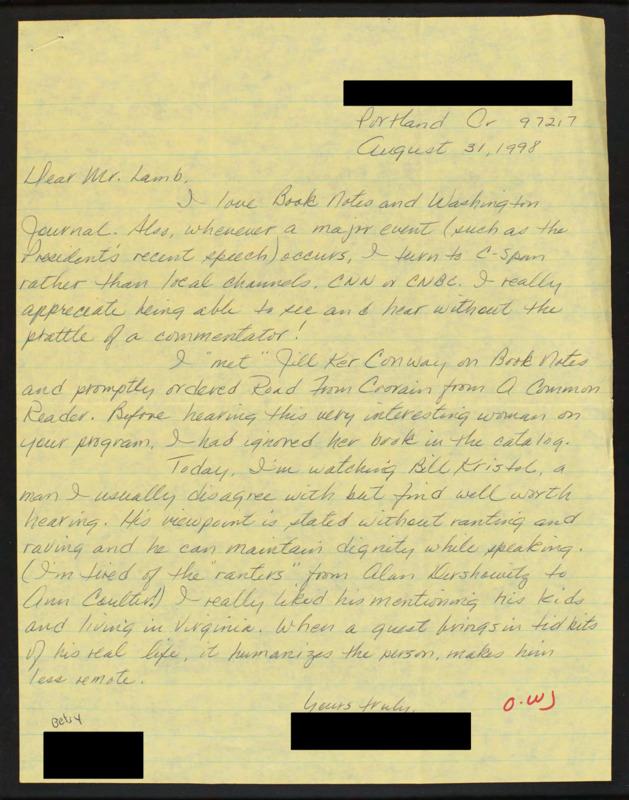 Portland Or 97217
August 31, 1998
Dear Mr. Lamb,
I love Book Notes and Washington
Journal. Also, whenever a major event (such as the
President's recent speech) occurs, I turn to C-Span
rather than local channels, CNN or CNBC. I really
appreciate being able to see and hear without the
prattle of a commentator!
I "met" Jill Ker Conway on Book Notes
and promptly ordered Road From Coorain from A Common
Reader. Before hearing this very interesting woman on
your program, I had ignored her book in the catalog.
Today, I'm watching Bill Kristol, a
man I usually disagree with but find well worth
hearing. His viewpoint is stated without ranting and
raving and he can maintain dignity while speaking.
(I'm tired of the "ranters" from Alan Dershowitz to
Ann Coulter!) I really liked his mentioning his kids
and living in Virginia. When a guest brings in tid bits
of his real life, it humanizes the person, makes him
less remote.
Yours truly,
O.WJ